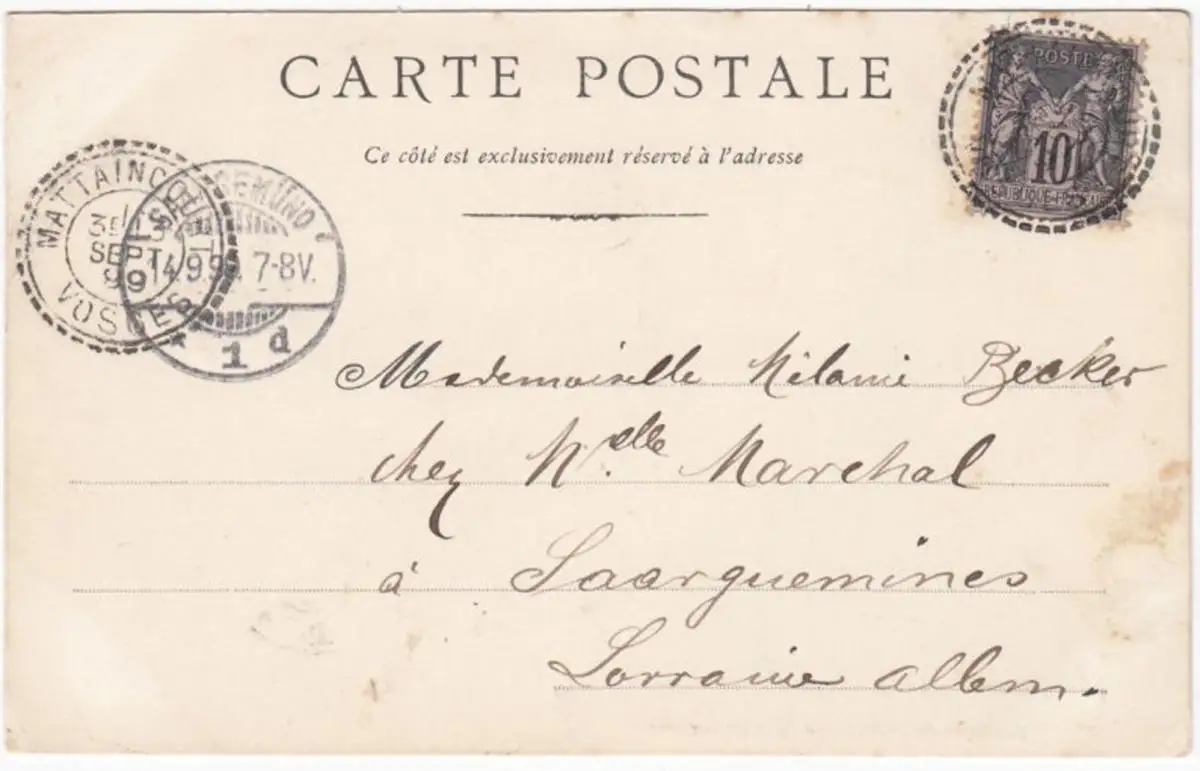 CARTE POSTALE
Ce côté est exclusivement réservé à l'adresse
POSTE
10
REPUBLIQUE FRANCAISE
MATTAINCOURT
13
SEPT
99
VOSGES
SAARGEMUND
14.9.99. 7-8V.
* 1 d
Mademoiselle Mélanie Becker
chez Melle Marchal
à Saarguemines
Lorraine allem.